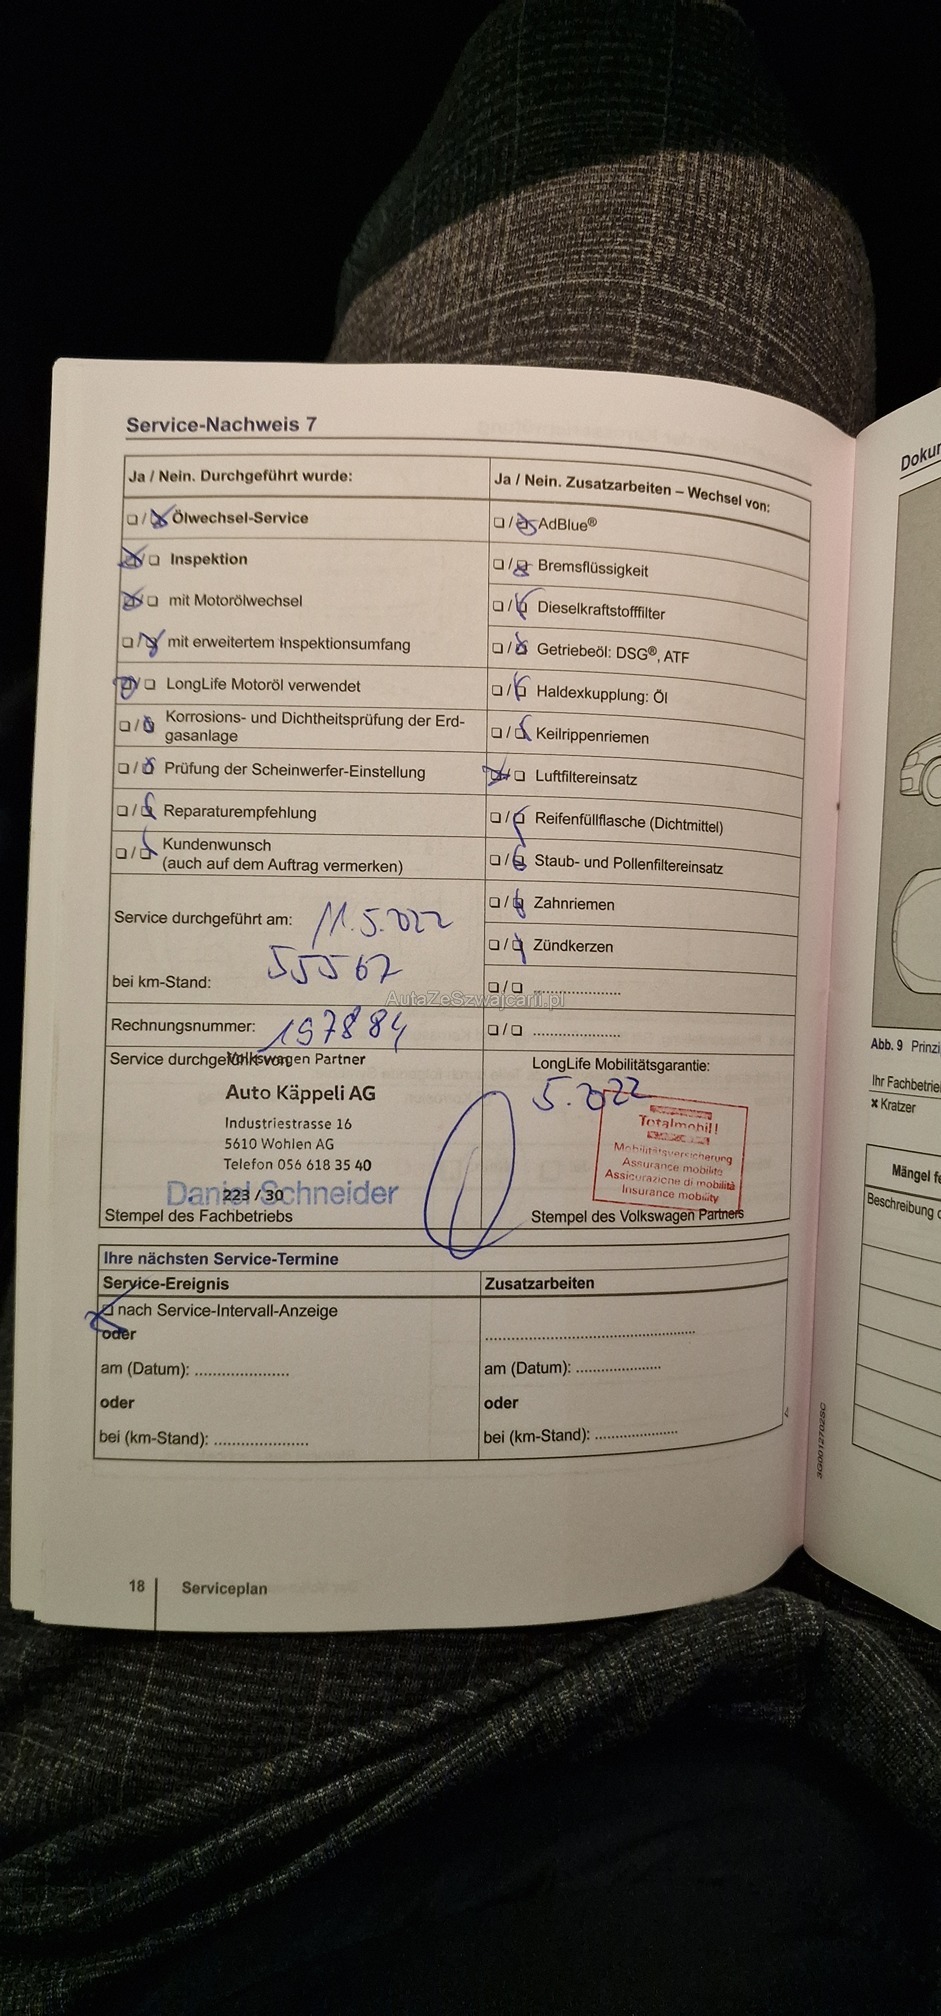 Service-Nachweis 7
Ja / Nein. Durchgeführt wurde:
❏ / ❏ Ölwechsel-Service
❏ / ❏ Inspektion
❏ / ❏ mit Motorölwechsel
❏ / ❏ mit erweitertem Inspektionsumfang
❏ / ❏ LongLife Motoröl verwendet
❏ / ❏ Korrosions- und Dichtheitsprüfung der Erd-
gasanlage
❏ / ❏ Prüfung der Scheinwerfer-Einstellung
❏ / ❏ Reparaturempfehlung
❏ / ❏ Kundenwunsch
(auch auf dem Auftrag vermerken)
Service durchgeführt am: 11.5.022
bei km-Stand: 55567
Rechnungsnummer: 197884
Ja / Nein. Zusatzarbeiten – Wechsel von:
❏ / ❏ AdBlue®
❏ / ❏ Bremsflüssigkeit
❏ / ❏ Dieselkraftstofffilter
❏ / ❏ Getriebeöl: DSG®, ATF
❏ / ❏ Haldexkupplung: Öl
❏ / ❏ Keilrippenriemen
❏ / ❏ Luftfiltereinsatz
❏ / ❏ Reifenfüllflasche (Dichtmittel)
❏ / ❏ Staub- und Pollenfiltereinsatz
❏ / ❏ Zahnriemen
❏ / ❏ Zündkerzen
❏ / ❏ ......................
❏ / ❏ ......................
AutaZeSzwajcarii.pl
Service durchgeführt von:
Volkswagen Partner
Auto Käppeli AG
Industriestrasse 16
5610 Wohlen AG
Telefon 056 618 35 40
223 / 30
Daniel Schneider
Stempel des Fachbetriebs
LongLife Mobilitätsgarantie:
5.2022
Totalmobil!
Mobilitätsversicherung
Assurance mobilité
Assicurazione di mobilità
Insurance mobility
Stempel des Volkswagen Partners
Ihre nächsten Service-Termine
Service-Ereignis
❏ nach Service-Intervall-Anzeige
oder
am (Datum): ......................
oder
bei (km-Stand): ......................
Zusatzarbeiten
......................
am (Datum): ......................
oder
bei (km-Stand): ......................
3G0012702SC
18 Serviceplan
Abb. 9 Prinzi
Ihr Fachbetrie
× Kratzer
Mängel fe
Beschreibung